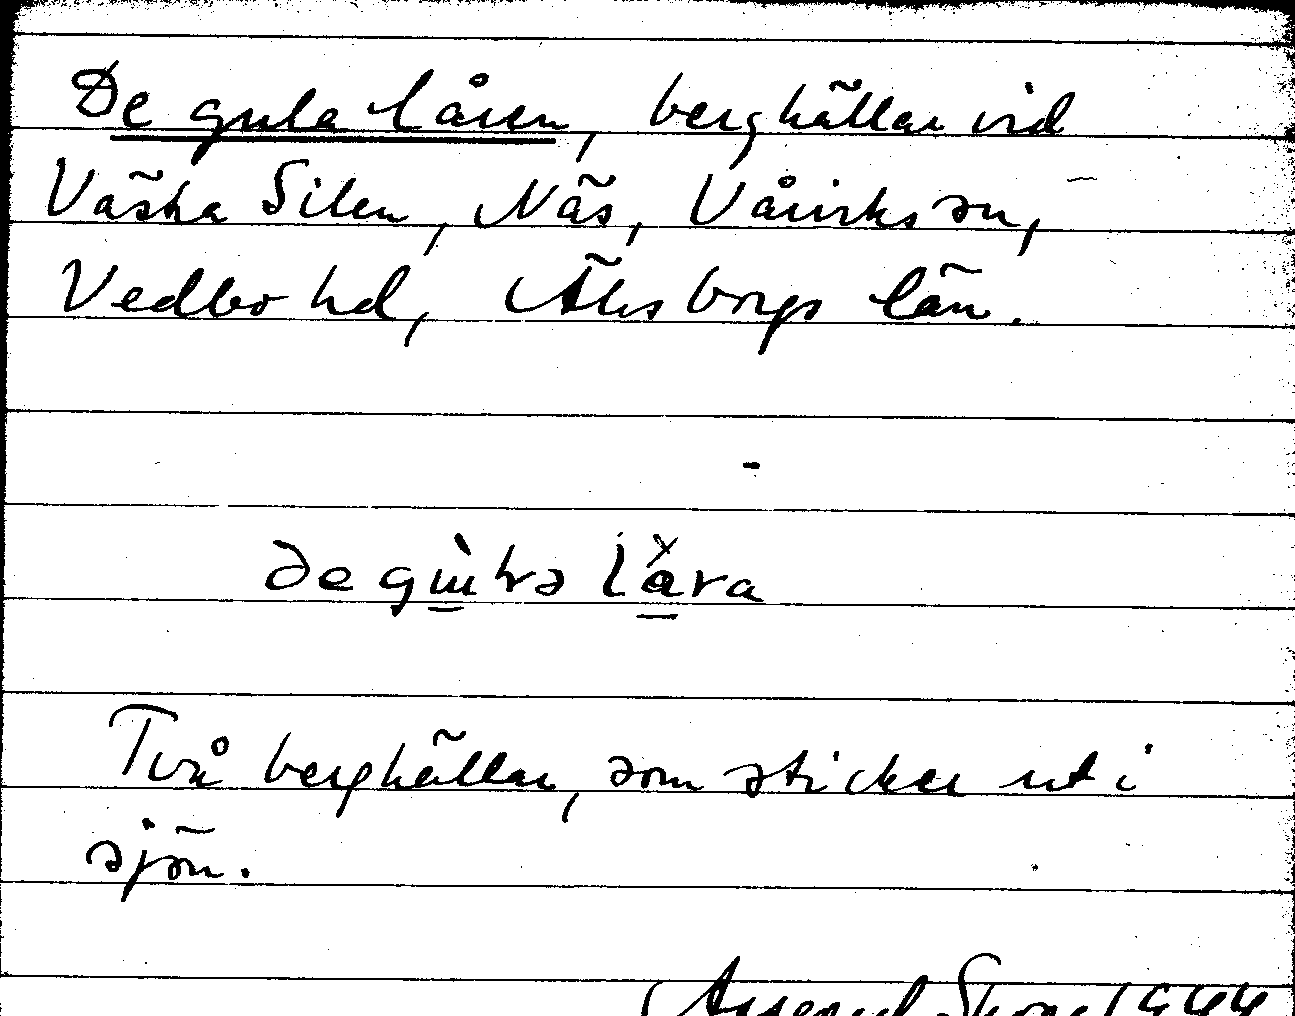 De gula låren, berghällar vid
Västra Silen, Näs, Vårviks sn,
Vedbo hd, Älvsborgs län.
de gɯ̀ʟrə låra
Två berghällar, som sticker ut i
sjön.
1944